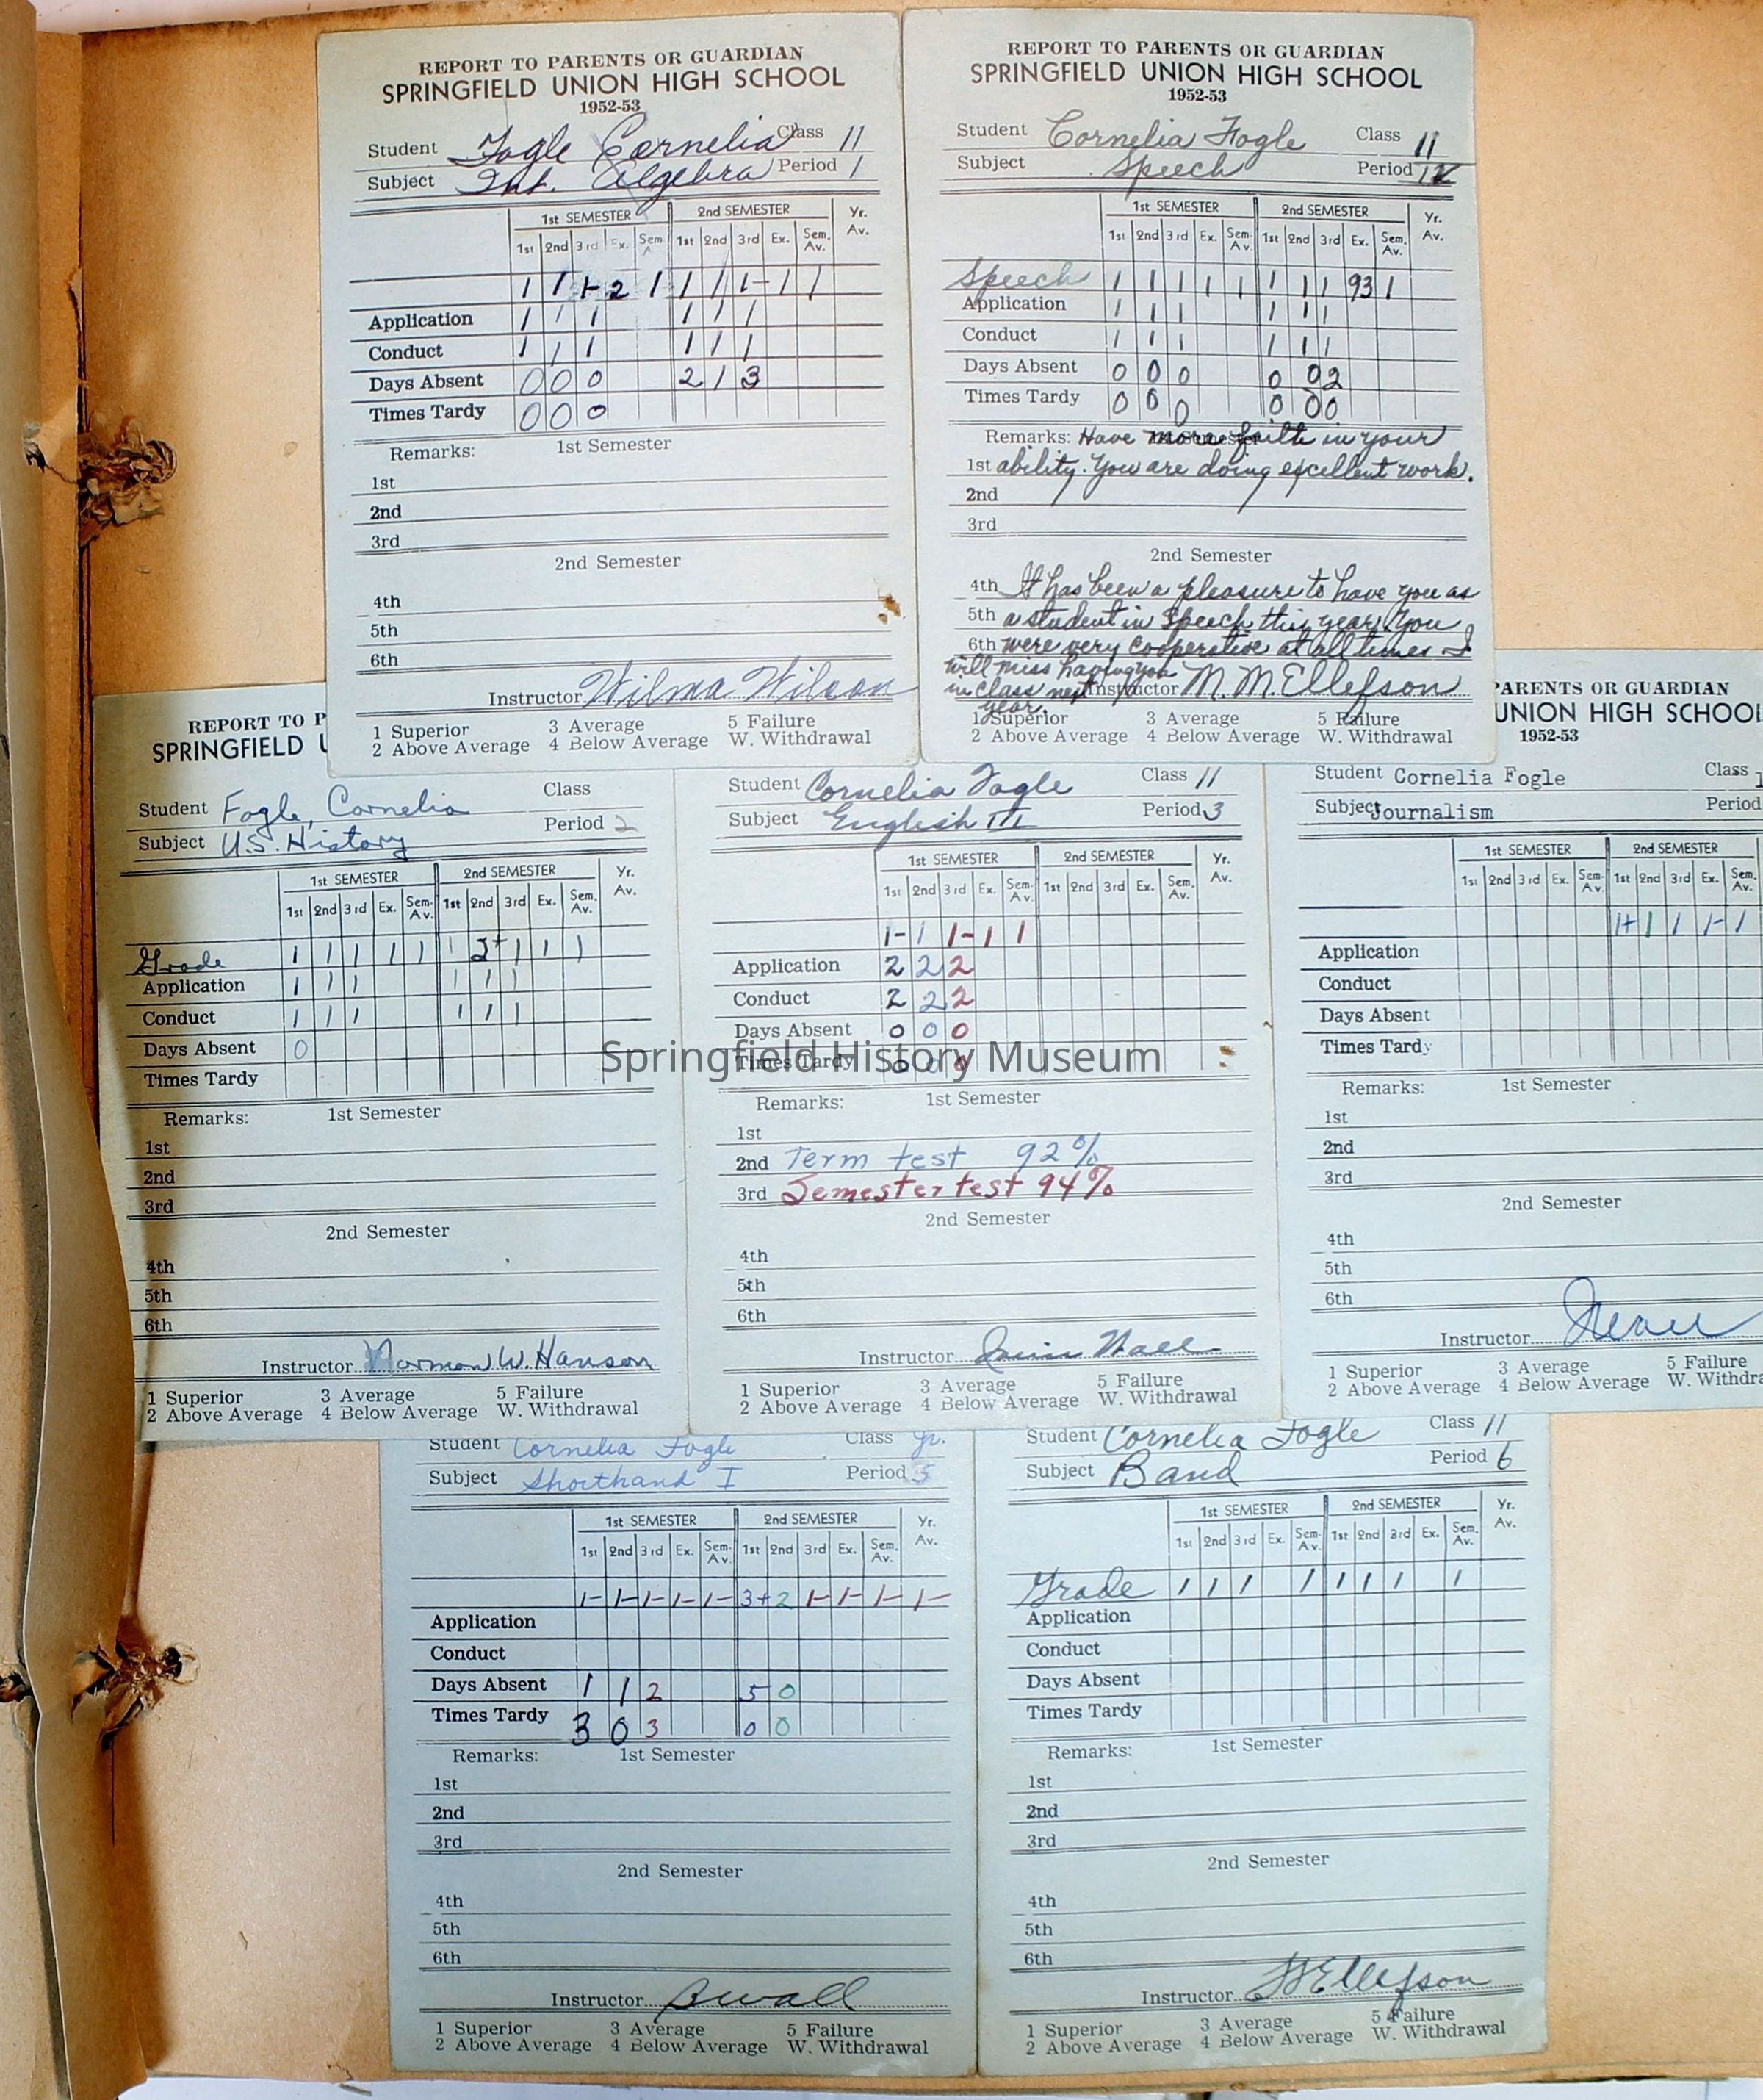 REPORT TO PARENTS OR GUARDIAN
SPRINGFIELD UNION HIGH SCHOOL
1952-53
Student Fogle Cornelia Class 11
Subject Int. Algebra Period 1
1st SEMESTER 2nd SEMESTER Yr. Av.
1st 2nd 3rd Ex. Sem A. 1st 2nd 3rd Ex. Sem. Av.
1 1 1- 2 1 1 1 1- 1 1
Application 1 1 1 1 1 1
Conduct 1 1 1 1 1 1
Days Absent 0 0 0 2 1 3
Times Tardy 0 0 0
Remarks: 1st Semester
1st
2nd
3rd
2nd Semester
4th
5th
6th
Instructor Wilma Wilson
1 Superior 3 Average 5 Failure
2 Above Average 4 Below Average W. Withdrawal
REPORT TO PARENTS OR GUARDIAN
SPRINGFIELD UNION HIGH SCHOOL
1952-53
Student Cornelia Fogle Class 11
Subject Speech Period
1st SEMESTER 2nd SEMESTER Yr. Av.
1st 2nd 3rd Ex. Sem. Av. 1st 2nd 3rd Ex. Sem. Av.
Speech 1 1 1 1 1 1 1 1 93 1
Application 1 1 1 1 1 1
Conduct 1 1 1 1 1 1
Days Absent 0 0 0 0 0 2
Times Tardy 0 0 0 0 0 0
Remarks: Have more faith in your
1st ability. You are doing excellent work.
2nd
3rd
2nd Semester
4th It has been a pleasure to have you as
5th a student in Speech this year. You
6th were very cooperative at all times I
will miss having you
in class next Instructor M. M. Ellefson
year.
1 Superior 3 Average 5 Failure
2 Above Average 4 Below Average W. Withdrawal
REPORT TO P
SPRINGFIELD U
Student Fogle, Cornelia Class
Subject U.S. History Period 2
1st SEMESTER 2nd SEMESTER Yr. Av.
1st 2nd 3rd Ex. Sem. Av. 1st 2nd 3rd Ex. Sem. Av.
Grade 1 1 1 1 1 1 2+ 1 1 1
Application 1 1 1 1 1 1
Conduct 1 1 1 1 1 1
Days Absent 0
Times Tardy
Remarks: 1st Semester
1st
2nd
3rd
2nd Semester
4th
5th
6th
Instructor Norman W. Hanson
1 Superior 3 Average 5 Failure
2 Above Average 4 Below Average W. Withdrawal
Student Cornelia Fogle Class 11
Subject English III Period 3
1st SEMESTER 2nd SEMESTER Yr. Av.
1st 2nd 3rd Ex. Sem. Av. 1st 2nd 3rd Ex. Sem. Av.
1- 1 1- 1 1
Application 2 2 2
Conduct 2 2 2
Days Absent 0 0 0
Times Tardy 0 0 0
Springfield History Museum
Remarks: 1st Semester
1st
2nd Term test 92%
3rd Semester test 94%
2nd Semester
4th
5th
6th
Instructor
1 Superior 3 Average 5 Failure
2 Above Average 4 Below Average W. Withdrawal
PARENTS OR GUARDIAN
UNION HIGH SCHOOL
1952-53
Student Cornelia Fogle Class 1
Subject Journalism Period
1st SEMESTER 2nd SEMESTER
1st 2nd 3rd Ex. Sem. Av. 1st 2nd 3rd Ex. Sem. Av.
1+ 1 1 1- 1
Application
Conduct
Days Absent
Times Tardy
Remarks: 1st Semester
1st
2nd
3rd
2nd Semester
4th
5th
6th
Instructor
1 Superior 3 Average 5 Failure
2 Above Average 4 Below Average W. Withdra
Student Cornelia Fogle Class Jr.
Subject Shorthand I Period 5
1st SEMESTER 2nd SEMESTER Yr. Av.
1st 2nd 3rd Ex. Sem. Av. 1st 2nd 3rd Ex. Sem. Av.
1- 1- 1- 1- 1- 3+ 2 1- 1- 1- 1-
Application
Conduct
Days Absent 1 1 2 5 0
Times Tardy 3 0 3 0 0
Remarks: 1st Semester
1st
2nd
3rd
2nd Semester
4th
5th
6th
Instructor
1 Superior 3 Average 5 Failure
2 Above Average 4 Below Average W. Withdrawal
Student Cornelia Fogle Class 11
Subject Band Period 6
1st SEMESTER 2nd SEMESTER Yr. Av.
1st 2nd 3rd Ex. Sem. Av. 1st 2nd 3rd Ex. Sem. Av.
Grade 1 1 1 1 1 1 1 1
Application
Conduct
Days Absent
Times Tardy
Remarks: 1st Semester
1st
2nd
3rd
2nd Semester
4th
5th
6th
Instructor Ellefson
1 Superior 3 Average 5 Failure
2 Above Average 4 Below Average W. Withdrawal